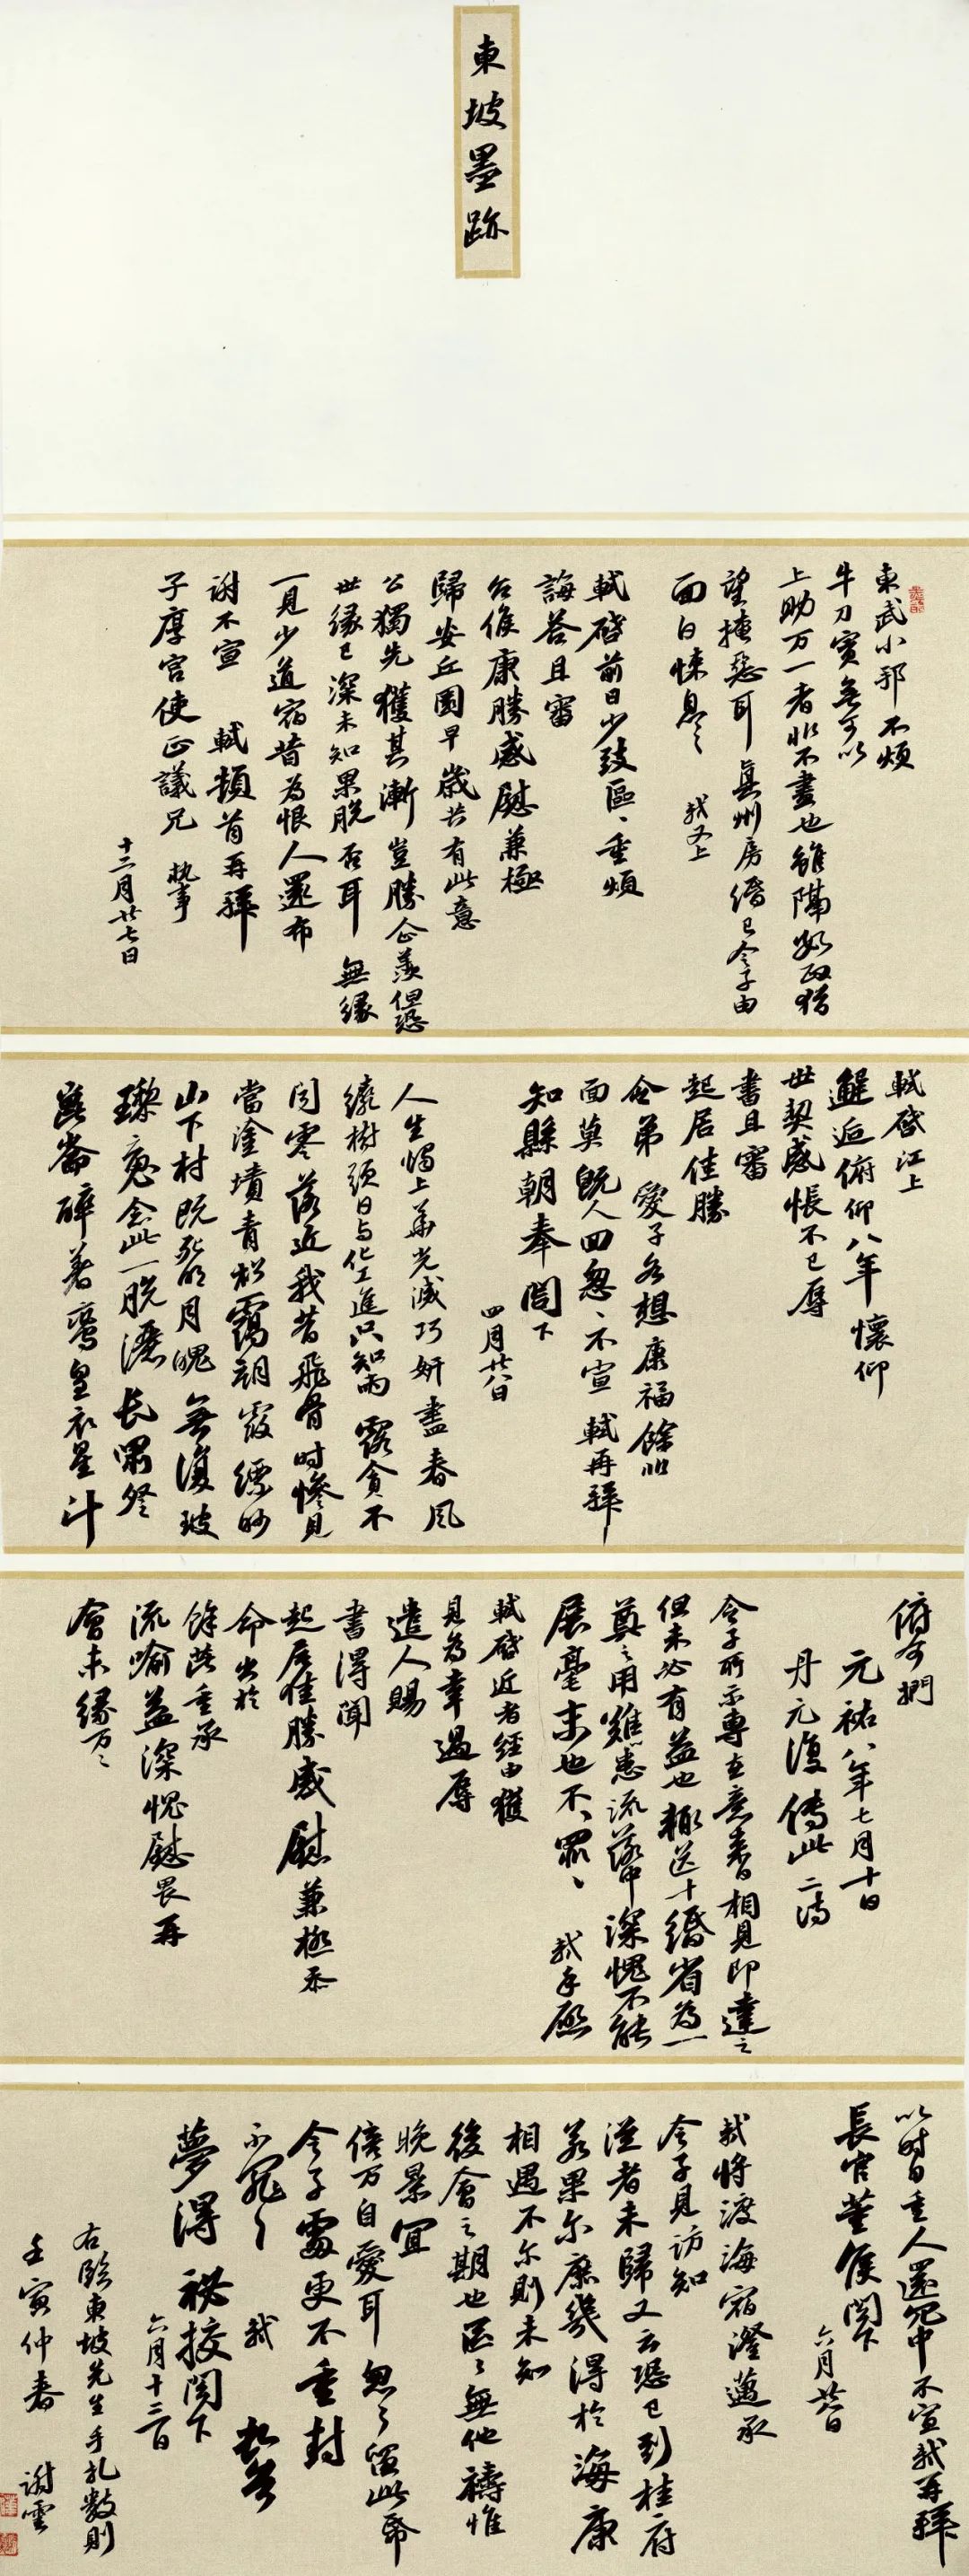 東坡墨跡
東武小邦不煩
牛刀實無可以
上助万一者非不盡也雖隔數政猶
望掩惡耳真州房緡已令子由
面白悚息々軾又上
軾啓前日少致區々重煩
誨荅且審
台候康勝感慰兼極
歸安丘園早歲共有此意
公獨先獲其漸豈勝企羨但恐
世緣已深未知果脫否耳無緣
一見少道宿昔為恨人還布
謝不宣軾頓首再拜
子厚宮使正議兄執事
十二月廿七日
軾啓江上
邂逅俯仰八年懷仰
世契感悵不已辱
書且審
起居佳勝
令弟愛子各想康福餘非
面莫既人回怱々不宣軾再拜
知縣朝奉閣下
四月廿八日
人生燭上華光滅巧妍盡春風
繞樹頭日与化工進只知雨露貪不
聞零落近我昔飛骨時慘見
當塗墳青松靄朝霞縹眇
山下村既死明月魄無復玻
瓈魂念此一脫灑長嘯登
崑崙醉著鸞皇衣星斗
俯可捫
元祐八年七月十日
丹元復傳此二詩
令子所示專在意來日相見即達之
但未必有益也輒送十緡省為一
奠之用難患流落中深愧不能
展毫末也不罪々軾手啓
軾啓近者經由獲
見為幸過辱
遣人賜
書得聞
起居佳勝感慰兼極忝
命出於
餘芘重承
流喻益深愧慰畏再
會未緣万々
以時自重人還宂中不宣軾再拜
長官董侯閣下
六月廿八日
軾將渡海宿澄邁承
令子見訪知
從者未歸又云恐已到桂府
若果尔庶幾得於海康
相遇不尓則未知
後會之期也區々無他禱惟
晚景宜
倍万自愛耳怱々留此帋
令子處更不重封
不罪々軾頓首
夢得秘校閣下
六月十三日
右臨東坡先生手札數則
壬寅仲春謝雲